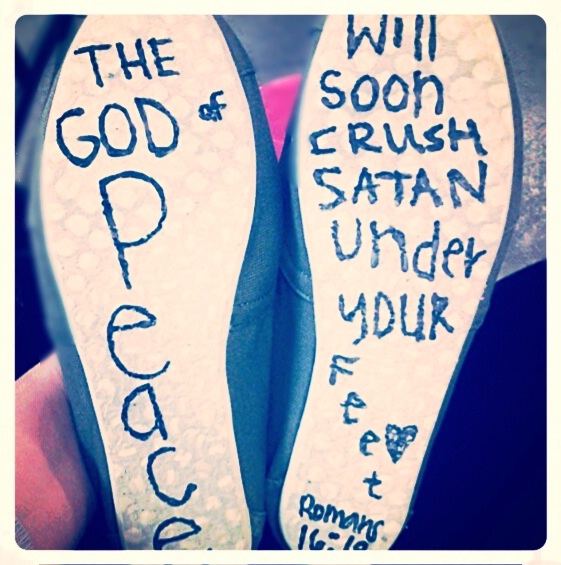 THE
GOD of
Peace
Will
Soon
CRUSH
SATAN
Under
YOUR
Feet
Romans